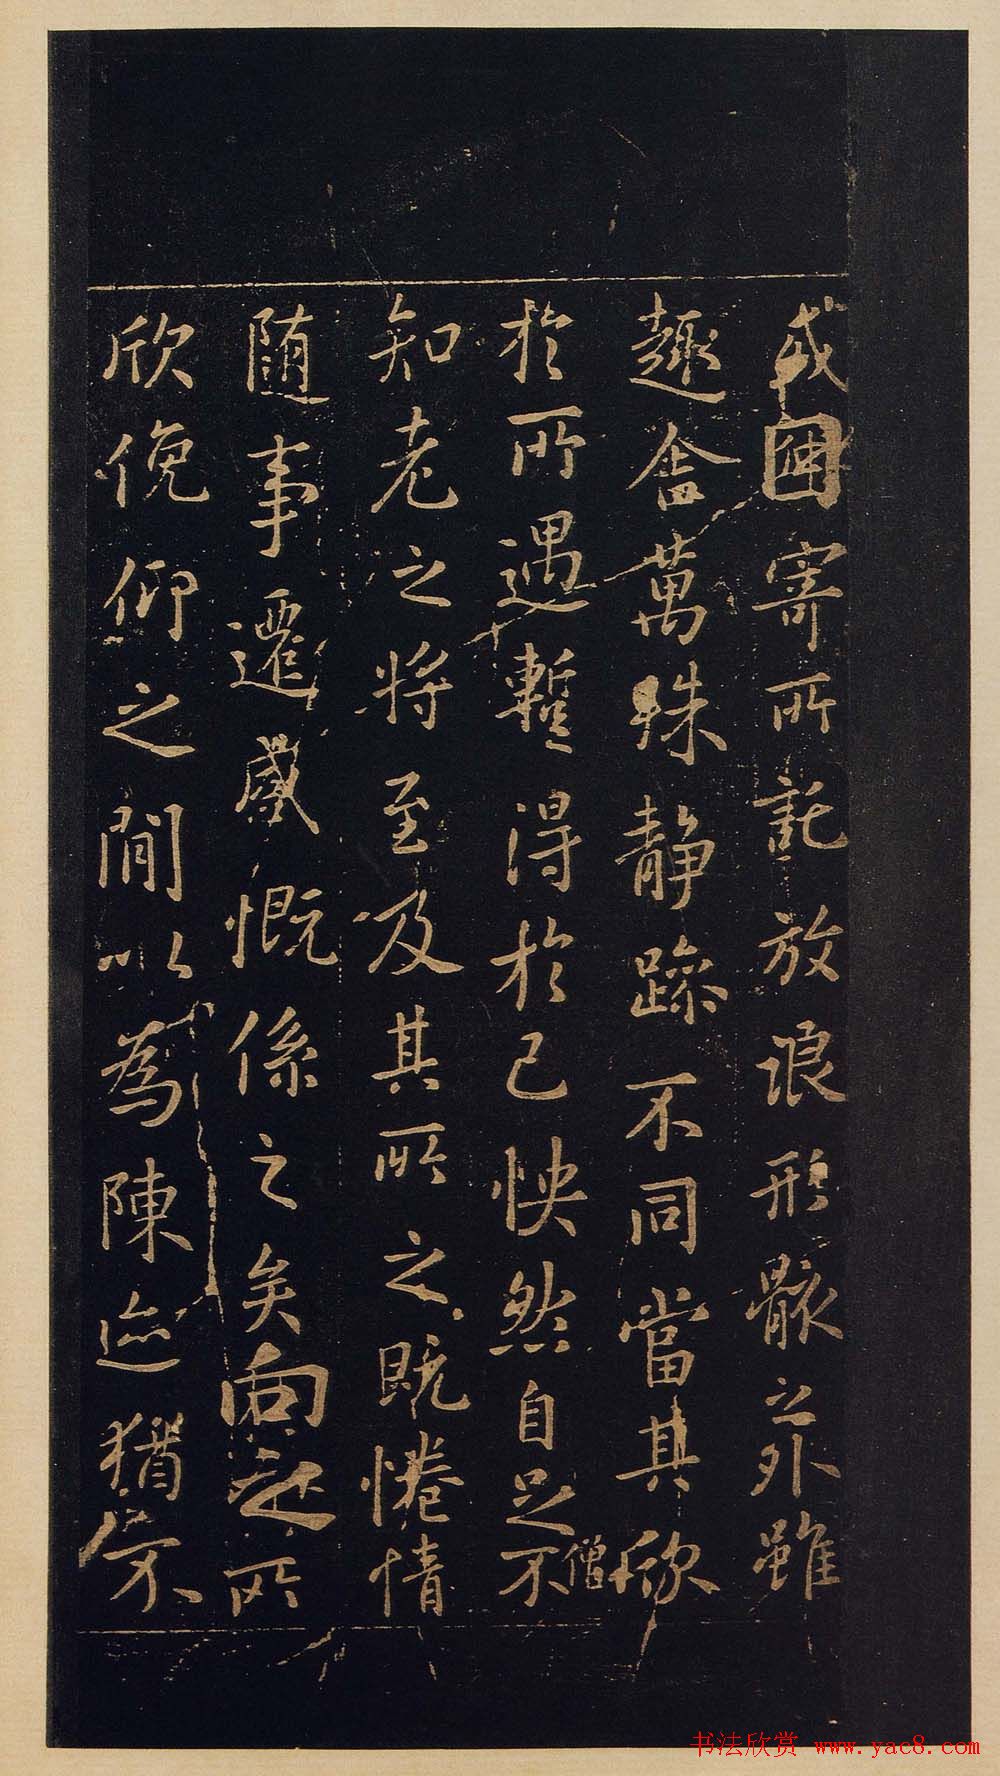 或因寄所託放浪形骸之外雖
趣舍萬殊靜躁不同當其欣
於所遇蹔得於己怏然自足不
僧
知老之將至及其所之既惓情
隨事遷感慨係之矣向之所
欣俛仰之閒以為陳迹猶不
书法欣赏 www.yac8.com